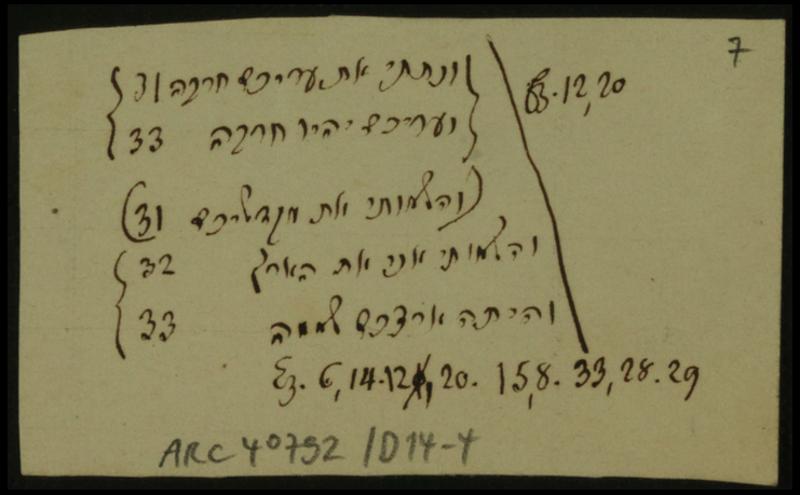 7
ונתתי את עריכם חרבה 31
Ez. 12,20
ועריכם יהיו חרבה 33
(והשמותי את מקדשיכם 31)
והשמותי אני את הארץ 32
והיתה ארצכם שממה 33
Ez. 6,14. 12,20. 15,8. 33,28. 29
ARC 40792 / D14-4